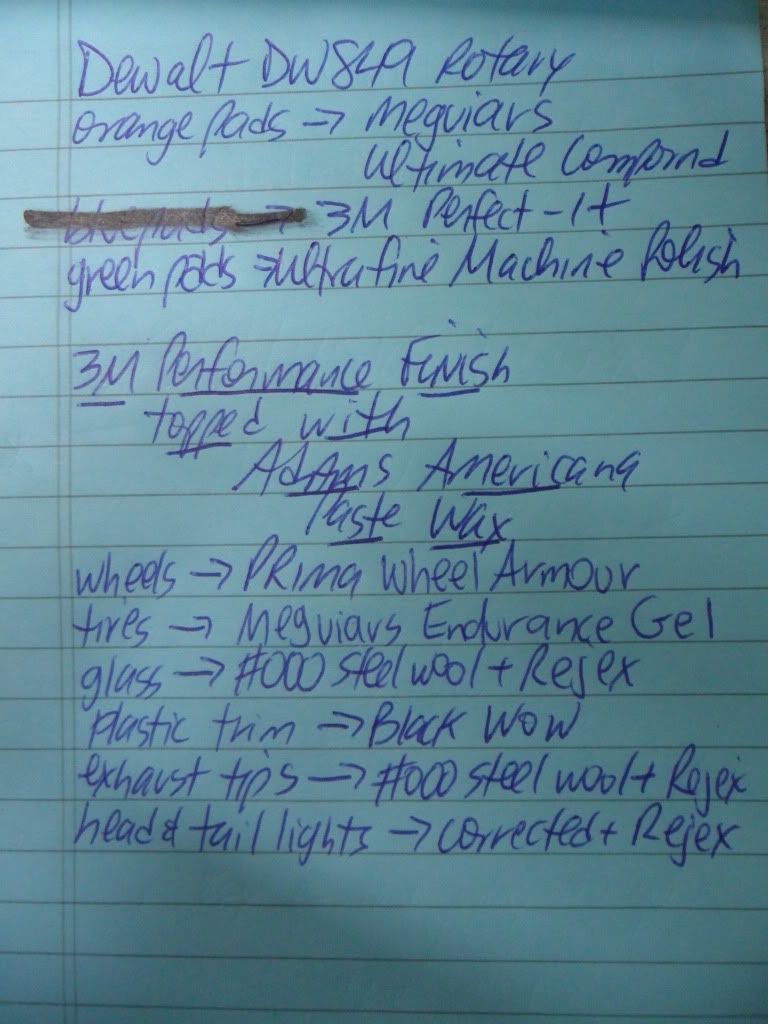 Dewalt DW849 Rotary
orange pads → Meguiars
Ultimate Compound
blue pads → 3M Perfect-It
green pads → Ultrafine Machine Polish
3M Performance Finish
topped with
Adams Americana
Paste Wax
wheels → PRima Wheel Armour
tires → Meguiars Endurance Gel
glass → #000 steel wool + Rejex
plastic trim → Black WOW
exhaust tips → #000 steel wool + Rejex
head & tail lights → corrected + Rejex